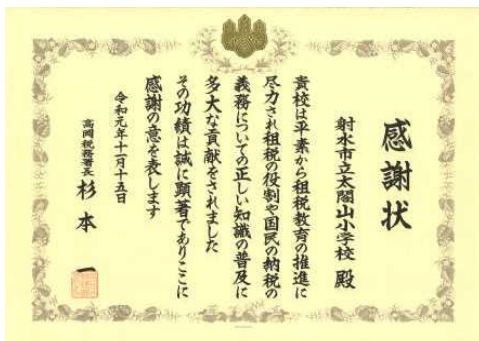 感謝状
射水市立太閤山小学校 殿
貴校は平素から租税教育の推進に
尽力され租税の役割や国民の納税の
義務についての正しい知識の普及に
多大な貢献をされました
その功績は誠に顕著でありここに
感謝の意を表します
令和元年十一月十五日
高岡税務署長 杉本 一